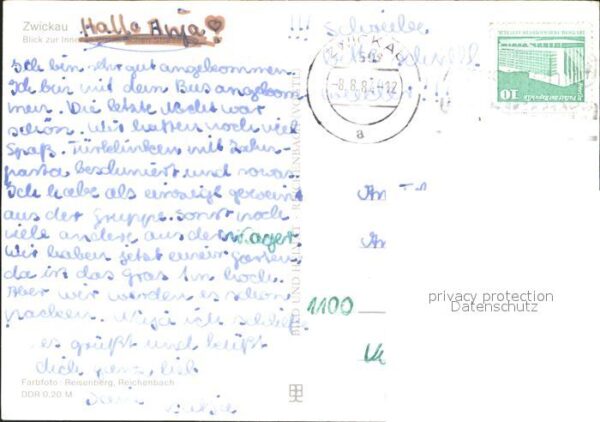 Zwickau
Blick zur Inne
Hallo Anja
Ich bin sehr gut angekommen.
Ich bin mit dem Bus angekom
men. Die letzte Nacht war
schön. Wir hatten noch viel
Spaß. Türklinken mit Zahn-
pasta beschmiert und sowas.
Ich habe als einzigste geweint
aus der Gruppe. sonst noch
viele andere aus der Lager
Wir haben jetzt einen Garten
da ist das Gras 1m hoch.
Aber wir werden es schon
packen. Naja ich schließe
es grüßt und küßt
dich ganz lieb
Farbfoto: Reisenberg, Reichenbach
DDR 0,20 M
BILD UND HEIMAT REICHENBACH
Schreibe
bitte schnell
!!!
ZWICKAU
-8.8.8
-12
a
10
1100
privacy protection
Datenschutz